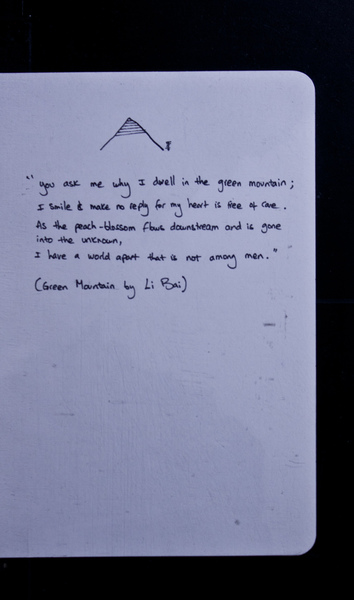 "you ask me why I dwell in the green mountain;
I smile & make no reply for my heart is free of care.
As the peach-blossom flows downstream and is gone
into the unknown,
I have a world apart that is not among men."
(Green Mountain by Li Bai)